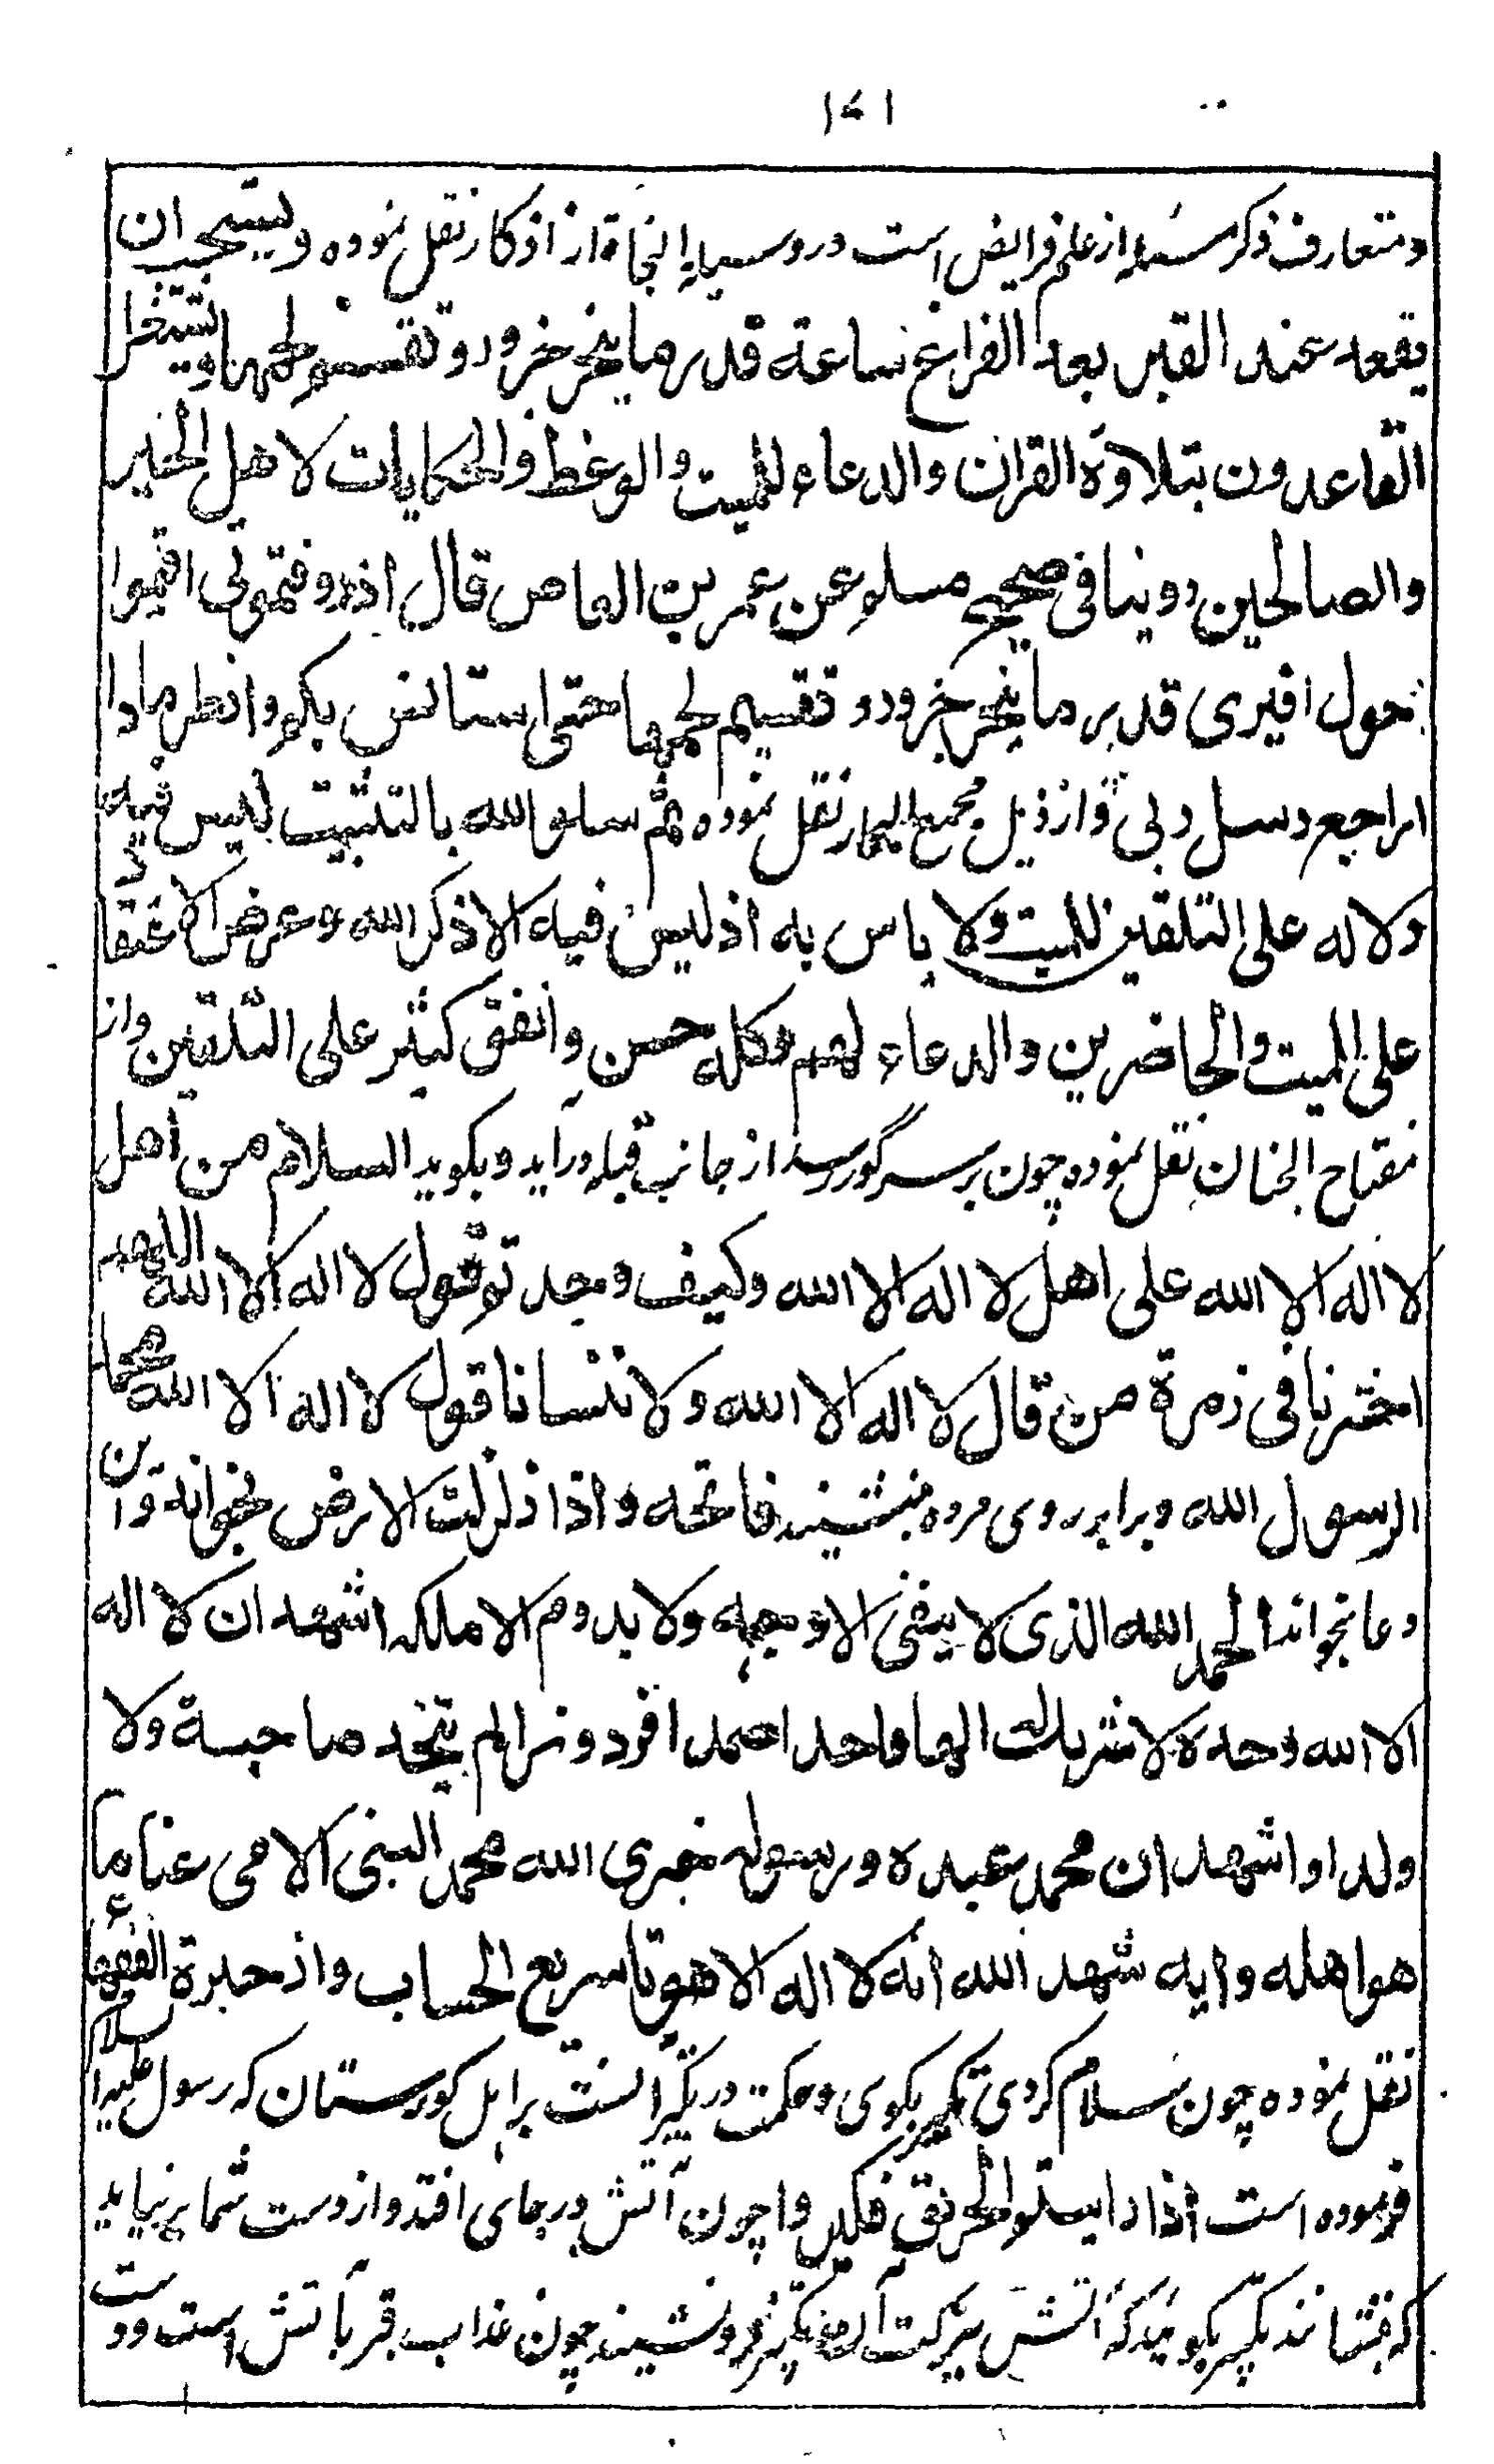 ۱۷۱
و متعارف ذکر مسئله از علم فرایض است و در وسیله النجاة از اذکار نقل نموده و یستحب ان
یقعد عند القبر بعد الفراغ ساعة قدر ما ینحر جزور و تقسم لحمها و یشتغل
القاعدون بتلاوة القران والدعاء للمیت والوعظ والحکایات لاهل الخیر
والصالحین روینا فی صحیح مسلم عن عمر بن العاص قال اذا دفنتمونی اقیموا
حول اقبری قدر ما ینحر جزور و تقسیم لحمها حتی استانس بکم وانظر ماذا
اراجع رسل ربی و از ذیل مجمع البحار نقل نموده ثم سلوا لله بالتثبیت لیس فیه
دلاله علی التلقین للمیت ولا باس به اذ لیس فیه الا ذکر الله وعرض الاعتقاد
علی المیت والحاضرین والدعاء لهم وکله حسن واتفق کثیر علی التلقین واز
مفتاح الجنان نقل نموده چون بر سر گور رسد از جانب قبله درآید و بگوید السلام من اهل
لا اله الا الله علی اهل لا اله الا الله وکیف وجدتم قول لا اله الا الله اللهم
احشرنا فی زمرة من قال لا اله الا الله ولا تنسانا قول لا اله الا الله محمد
الرسول الله وبرابر روی مرده بنشیند فاتحه و اذا زلزلت الارض بخواند و این
دعا بخواند الحمد لله الذی لا یبقی الا وجهه ولا یدوم الا ملکه اشهد ان لا اله
الا الله وحده لا شریک الها واحدا صمدا فردا وترا لم یتخذ صاحبة ولا
ولدا واشهد ان محمد عبده ورسوله جزی الله محمد النبی الامی عنا ما
هو اهله وایه شهد الله انه لا اله الا هو تا سریع الحساب واز حیرة الفقهاء
نقل نموده چون سلام کردی تکبیر بگوی و حکمت در تکبیر آنست بر اهل گورستان که رسول علیه السلام
فرموده است اذا رایتم الحریق فکبروا چون آتش در جای افتد و از دست شما برنیاید
که بنشانند تکبیر بگوئید که آتش ببرکت آن تکبیر فرو نشیند چون عذاب قبر بآتش است ودست